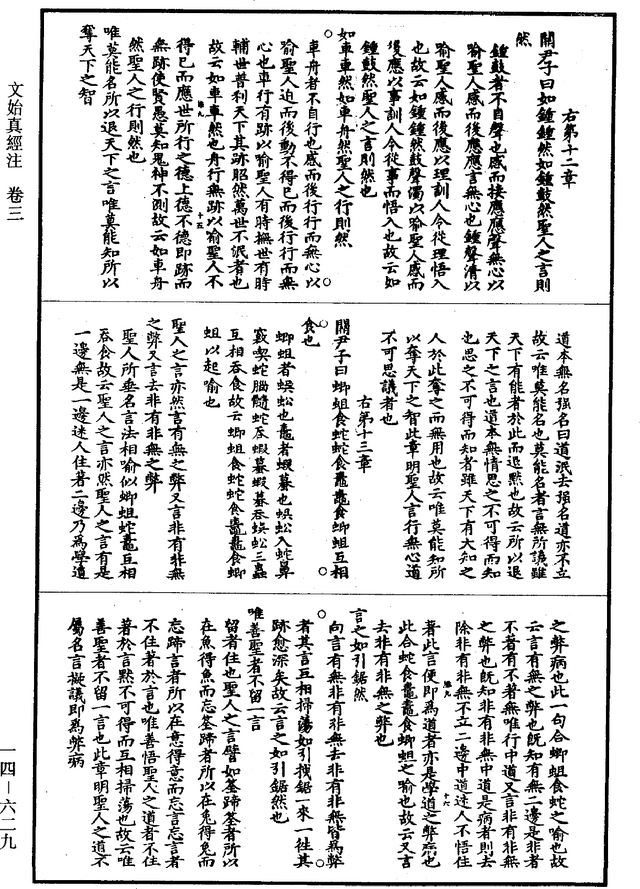 右第十二章
關尹子曰如鍾鍾然如鍾鼓然聖人之言則
然
鍾鼓者不自聲也感而接應應聲無心以
喻聖人感而後應應言無心也鍾聲清以
喻聖人感而後應以理訓人令從理悟入
也故云如鍾鍾然鼓聲濁以喻聖人感而
後應以事訓人令從事而悟入也故云如
鍾鼓然聖人之言則然也
如車車然如車舟然聖人之行則然
車舟者不自行也感而後行行而無心以
喻聖人迫而後動不得已而後行行而無
心也車行有跡以喻聖人有時撫世有時
輔世普利天下其跡昭然萬世不泯者也
故云如車車然也舟行無跡以喻聖人不
得已而應世所行之德上德不德即跡而
無跡使賢愚莫知鬼神不測故云如車舟
然聖人之行則然也
唯莫能名所以退天下之言唯莫能知所以
奪天下之智
道本無名强名曰道泯去强名道亦不立
故云唯莫能名也莫能名者言無所議雖
天下有能者於此而退默也故云所以退
天下之言也道本無情思之不可得而知
也思之不可得而知者雖天下有大知之
人於此奪之而無用也故云唯莫能知所
以奪天下之智此章明聖人言行無心道
不可思議者也
右第十三章
關尹子曰蝍蛆食蛇蛇食鼃鼃食蝍蛆互相
食也
蝍蛆者蜈蚣也鼃者蝦蟇也蜈蚣入蛇鼻
竅喫蛇腦髓蛇吞蝦蟇蝦蟇吞蜈蚣三蟲
互相吞食故云蝍蛆食蛇蛇食鼃鼃食蝍
蛆以起喻也
聖人之言亦然言有無之弊又言非有非無
之弊又言去非有非無之弊
聖人所垂名言法相喻似蝍蛆蛇鼃互相
吞食故云聖人之言亦然聖人之言有是
一邊無是一邊迷人住著二邊乃為學道
之弊病也此一句合蝍蛆食蛇之喻也故
云言有無之弊也旣知有無二邊是非者
不著有不著無唯行中道又言非有非無
之弊也旣知非有非無中道是病者則去
除非有非無不立二邊中道迷人不悟住
著此言便即為道者亦是學道之弊病也
此合蛇食鼃鼃食蝍蛆之喻也故云又言
去非有非無之弊也
言之如引鋸然
向言有無非有非無去非有非無皆為弊
者其言互相掃蕩如引拽鋸一來一徃其
跡愈深矣故云言之如引鋸然也
唯善聖者不留一言
留者住也聖人之言譬如筌蹄筌者所以
在魚得魚而忘筌蹄者所以在兔得兔而
忘蹄言者所以在意得意而忘言忘言者
不住著於言也唯善悟聖人之道者不住
著於言默不可得而互相掃蕩也故云唯
善聖者不留一言也此章明聖人之道不
屬名言擬議即為弊病
文始真經注 卷三
一四－六二九